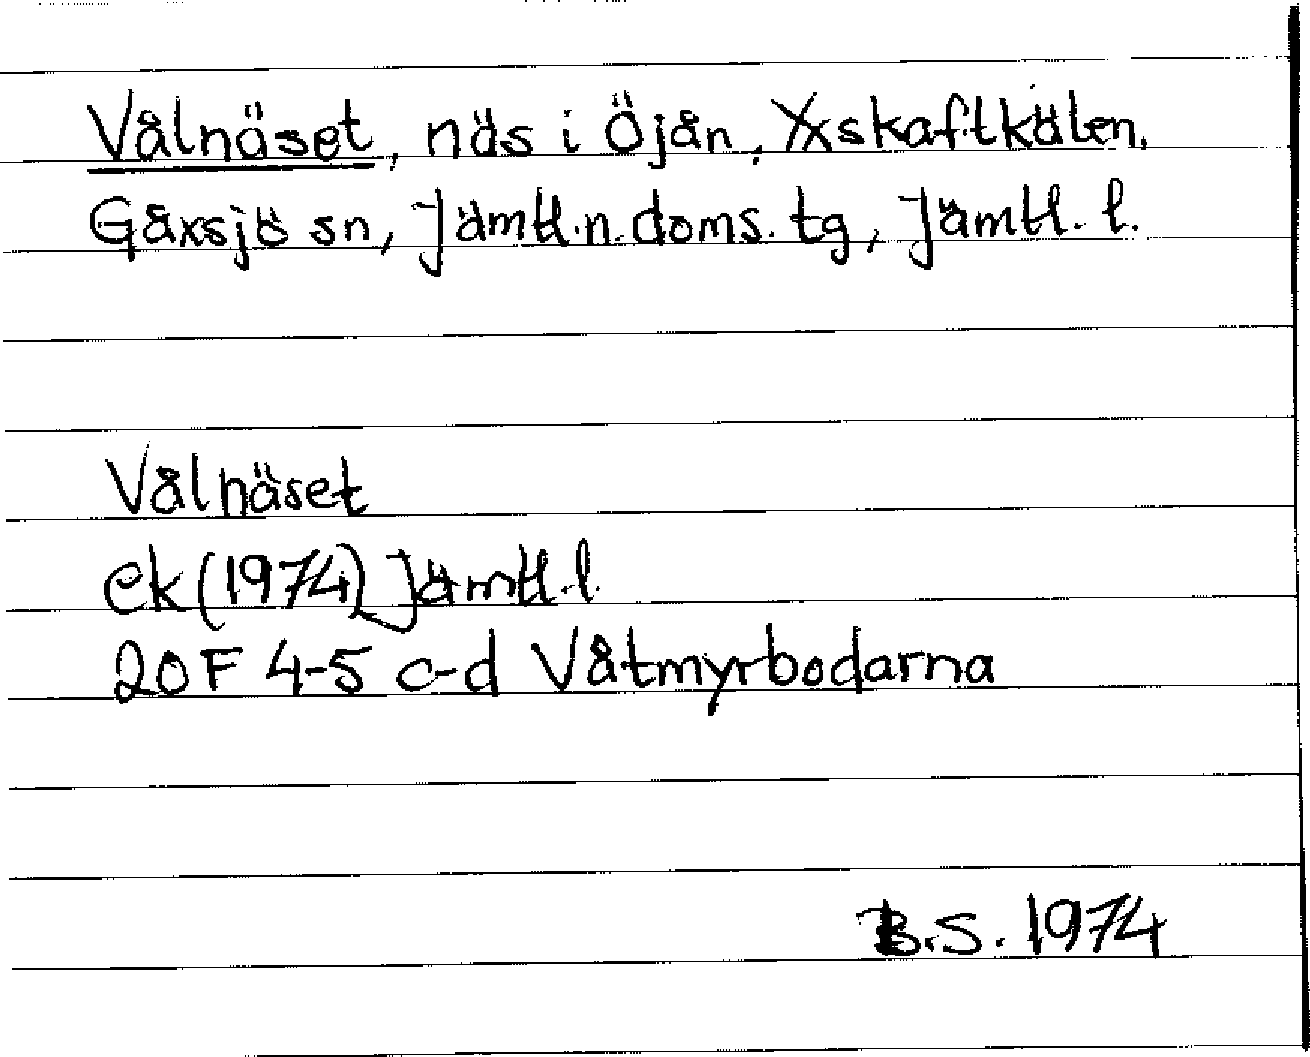 Vålnäset, näs i Öjån, Yxskaftkälen,
Gåxsjö sn, Jämtl.n.doms.tg, Jämtl. l.
Vålnäset
ek (1974) Jämtl.l.
20F 4-5 c-d Våtmyrbodarna
B.S. 1974